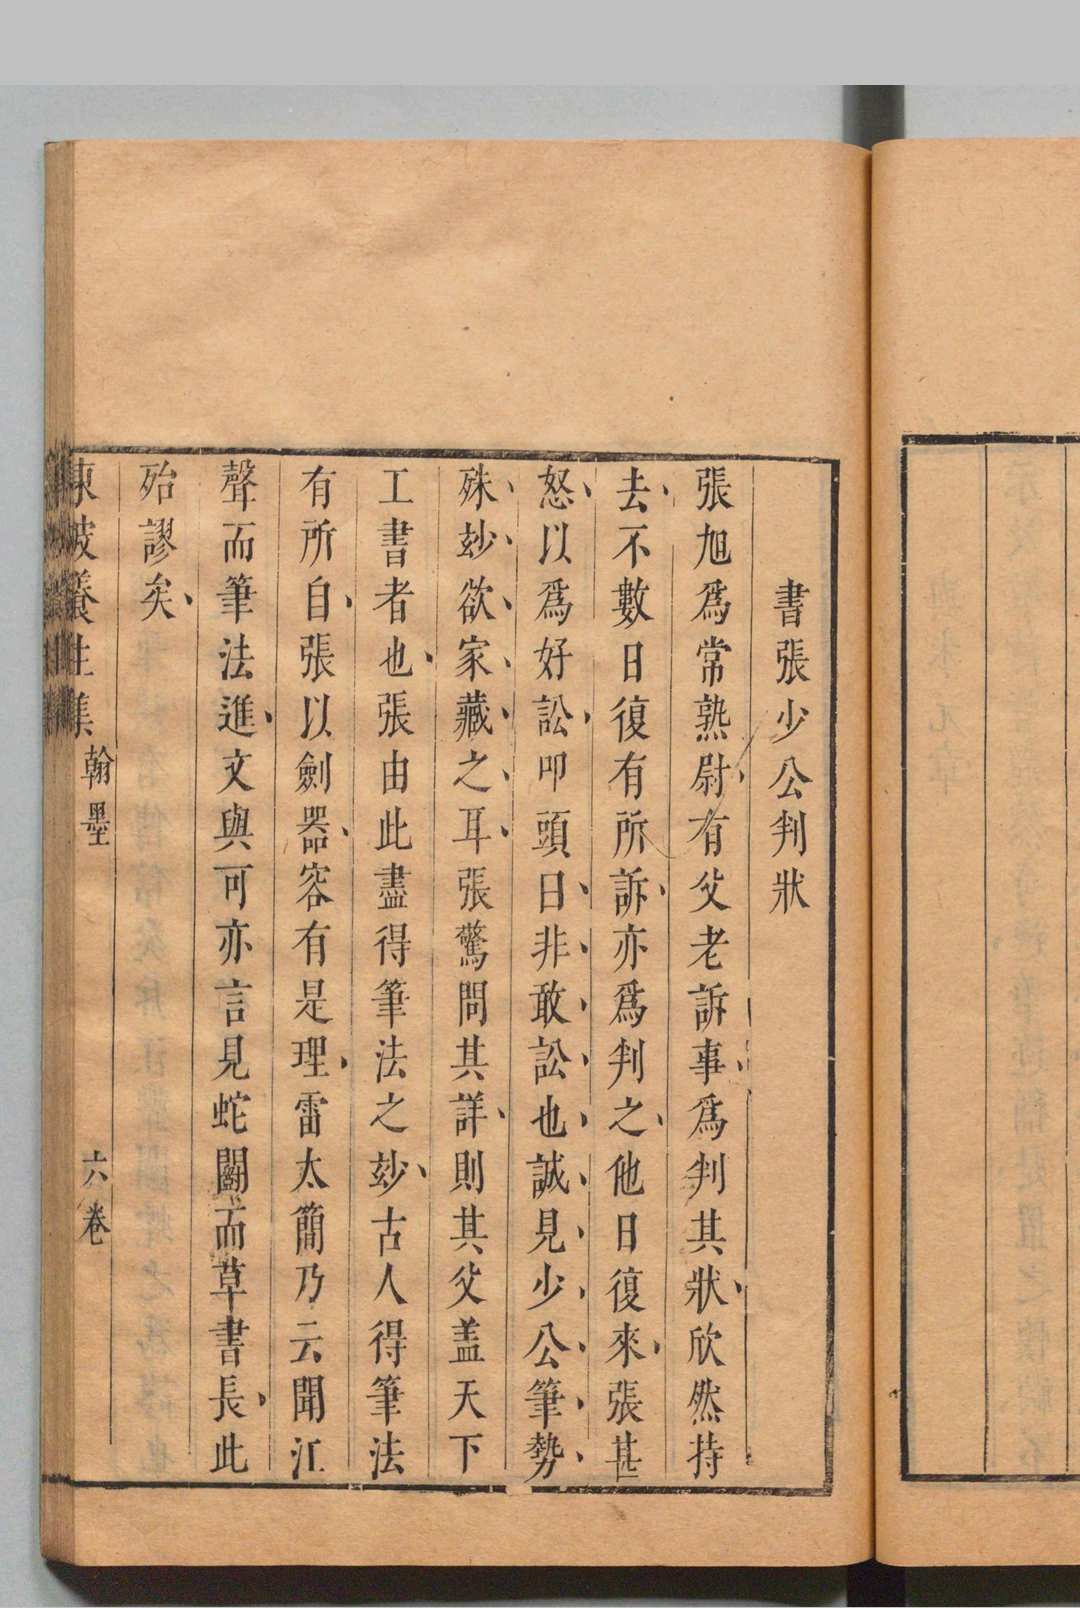 書張少公判狀
張旭爲常熟尉有父老訴事爲判其狀欣然持
去不數日復有所訴亦爲判之他日復來張甚
怒以爲好訟叩頭曰非敢訟也誠見少公筆勢
殊妙欲家藏之耳張驚問其詳則其父盖天下
工書者也張由此盡得筆法之妙古人得筆法
有所自張以劍器容有是理雷太簡乃云聞江
聲而筆法進文與可亦言見蛇鬭而草書長此
殆謬矣
東坡養生集 翰墨 六卷